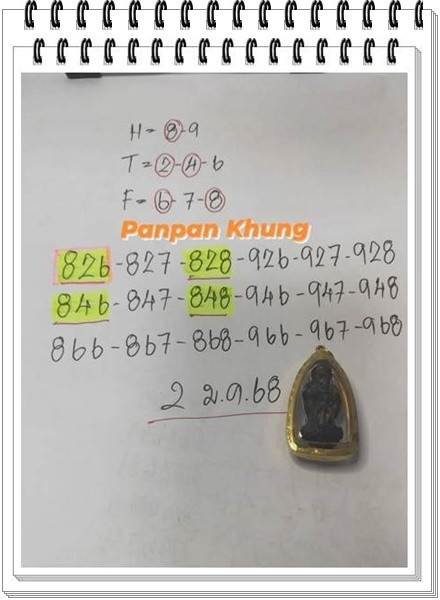 H = 8-9
T = 2-4-6
F = 6-7-8
Panpan Khung
826-827-828-926-927-928
846-847-848-946-947-948
866-867-868-966-967-968
2 ม.ค.68